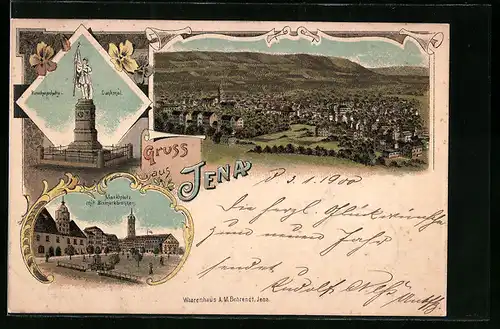 Burschenschafts- Denkmal
Gruss
aus
JENA
Marktplatz
mit Bismarckbrunnen
3.1.1900
Die herzl. Glückwünsche
zum neuen Jahr
sendet
Rudolf
Waarenhaus A. M. Behrendt, Jena.